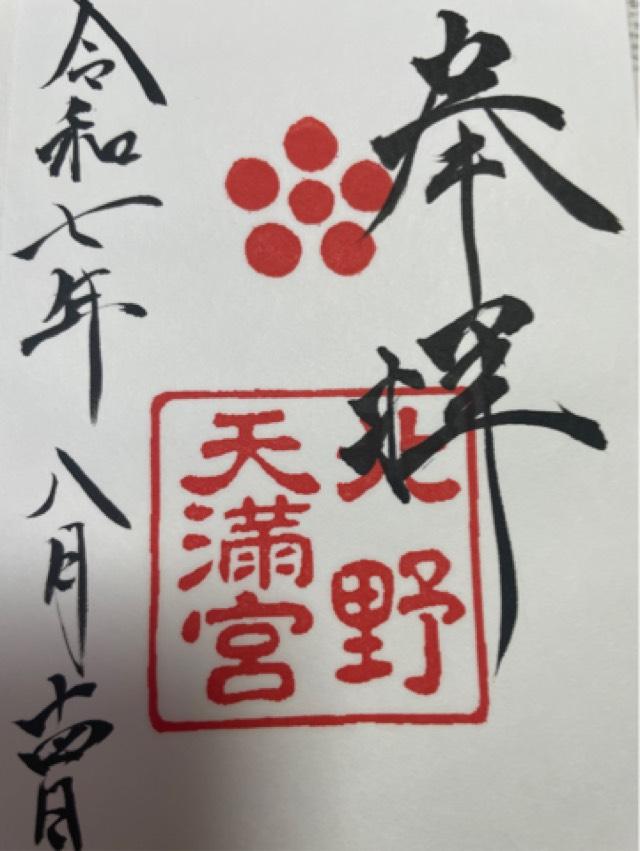 奉拝
北野
天満宮
令和七年八月十四日